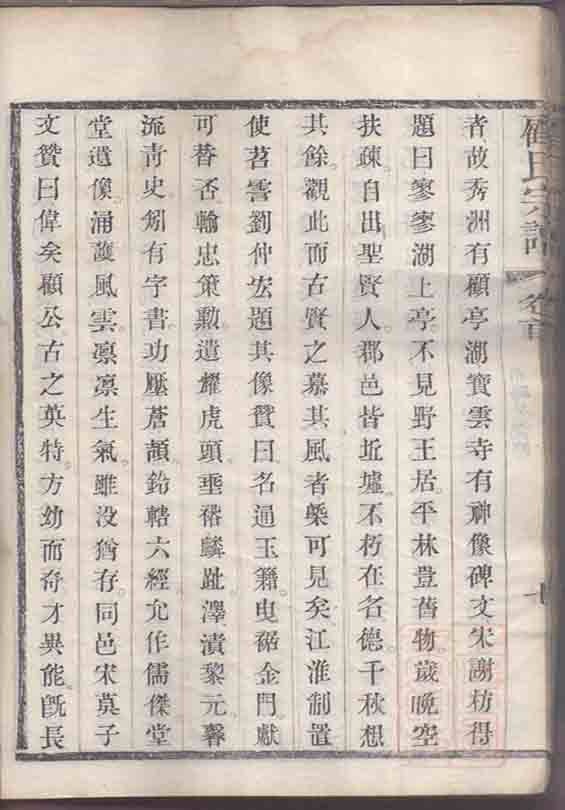 顧氏宗譜
卷首
者故秀洲有顧亭湖寶雲寺有神像碑文宋謝枋得
題曰寥寥湖上亭。不見野王居。平林豈舊物。歲晚空
扶疎。自出聖賢人。郡邑皆坵墟。不朽在名德。千秋想
其餘。觀此而古賢之慕其風者槩可見矣江淮制置
使苕霅劉仲宏題其像贊曰名通玉籍。曳裾金門獻
可替否輸忠策勳遺耀虎頭。垂裕麟趾澤漬黎元馨
流青史矧有字書。功壓蒼頡鈐轄六經允作儒傑堂
堂遺像。涌護風雲凛凛生氣。雖没猶存。同邑宋莫子
文贊曰偉矣顧公古之英特。方幼而奇才異能。旣長
七